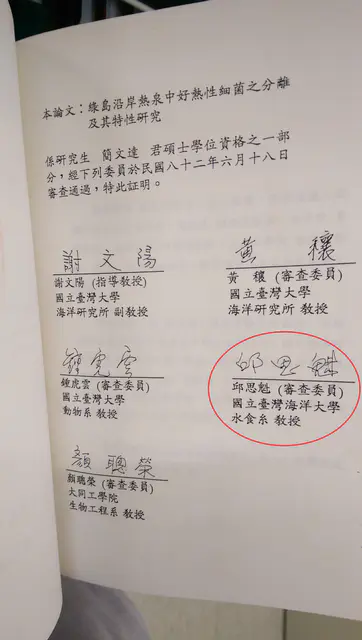 本論文：綠島沿岸熱泉中好熱性細菌之分離
及其特性研究
係研究生 簡文達 君碩士學位資格之一部
分，經下列委員於民國八十二年六月十八日
審查通過，特此証明。
謝文陽
謝文陽 (指導教授)
國立臺灣大學
海洋研究所 副教授
黃穰
黃 穰 (審查委員)
國立臺灣大學
海洋研究所 教授
鍾虎雲
鍾虎雲 (審查委員)
國立臺灣大學
動物系 教授
邱思魁
邱思魁 (審查委員)
國立臺灣海洋大學
水食系 教授
顏聰榮
顏聰榮 (審查委員)
大同工學院
生物工程系 教授